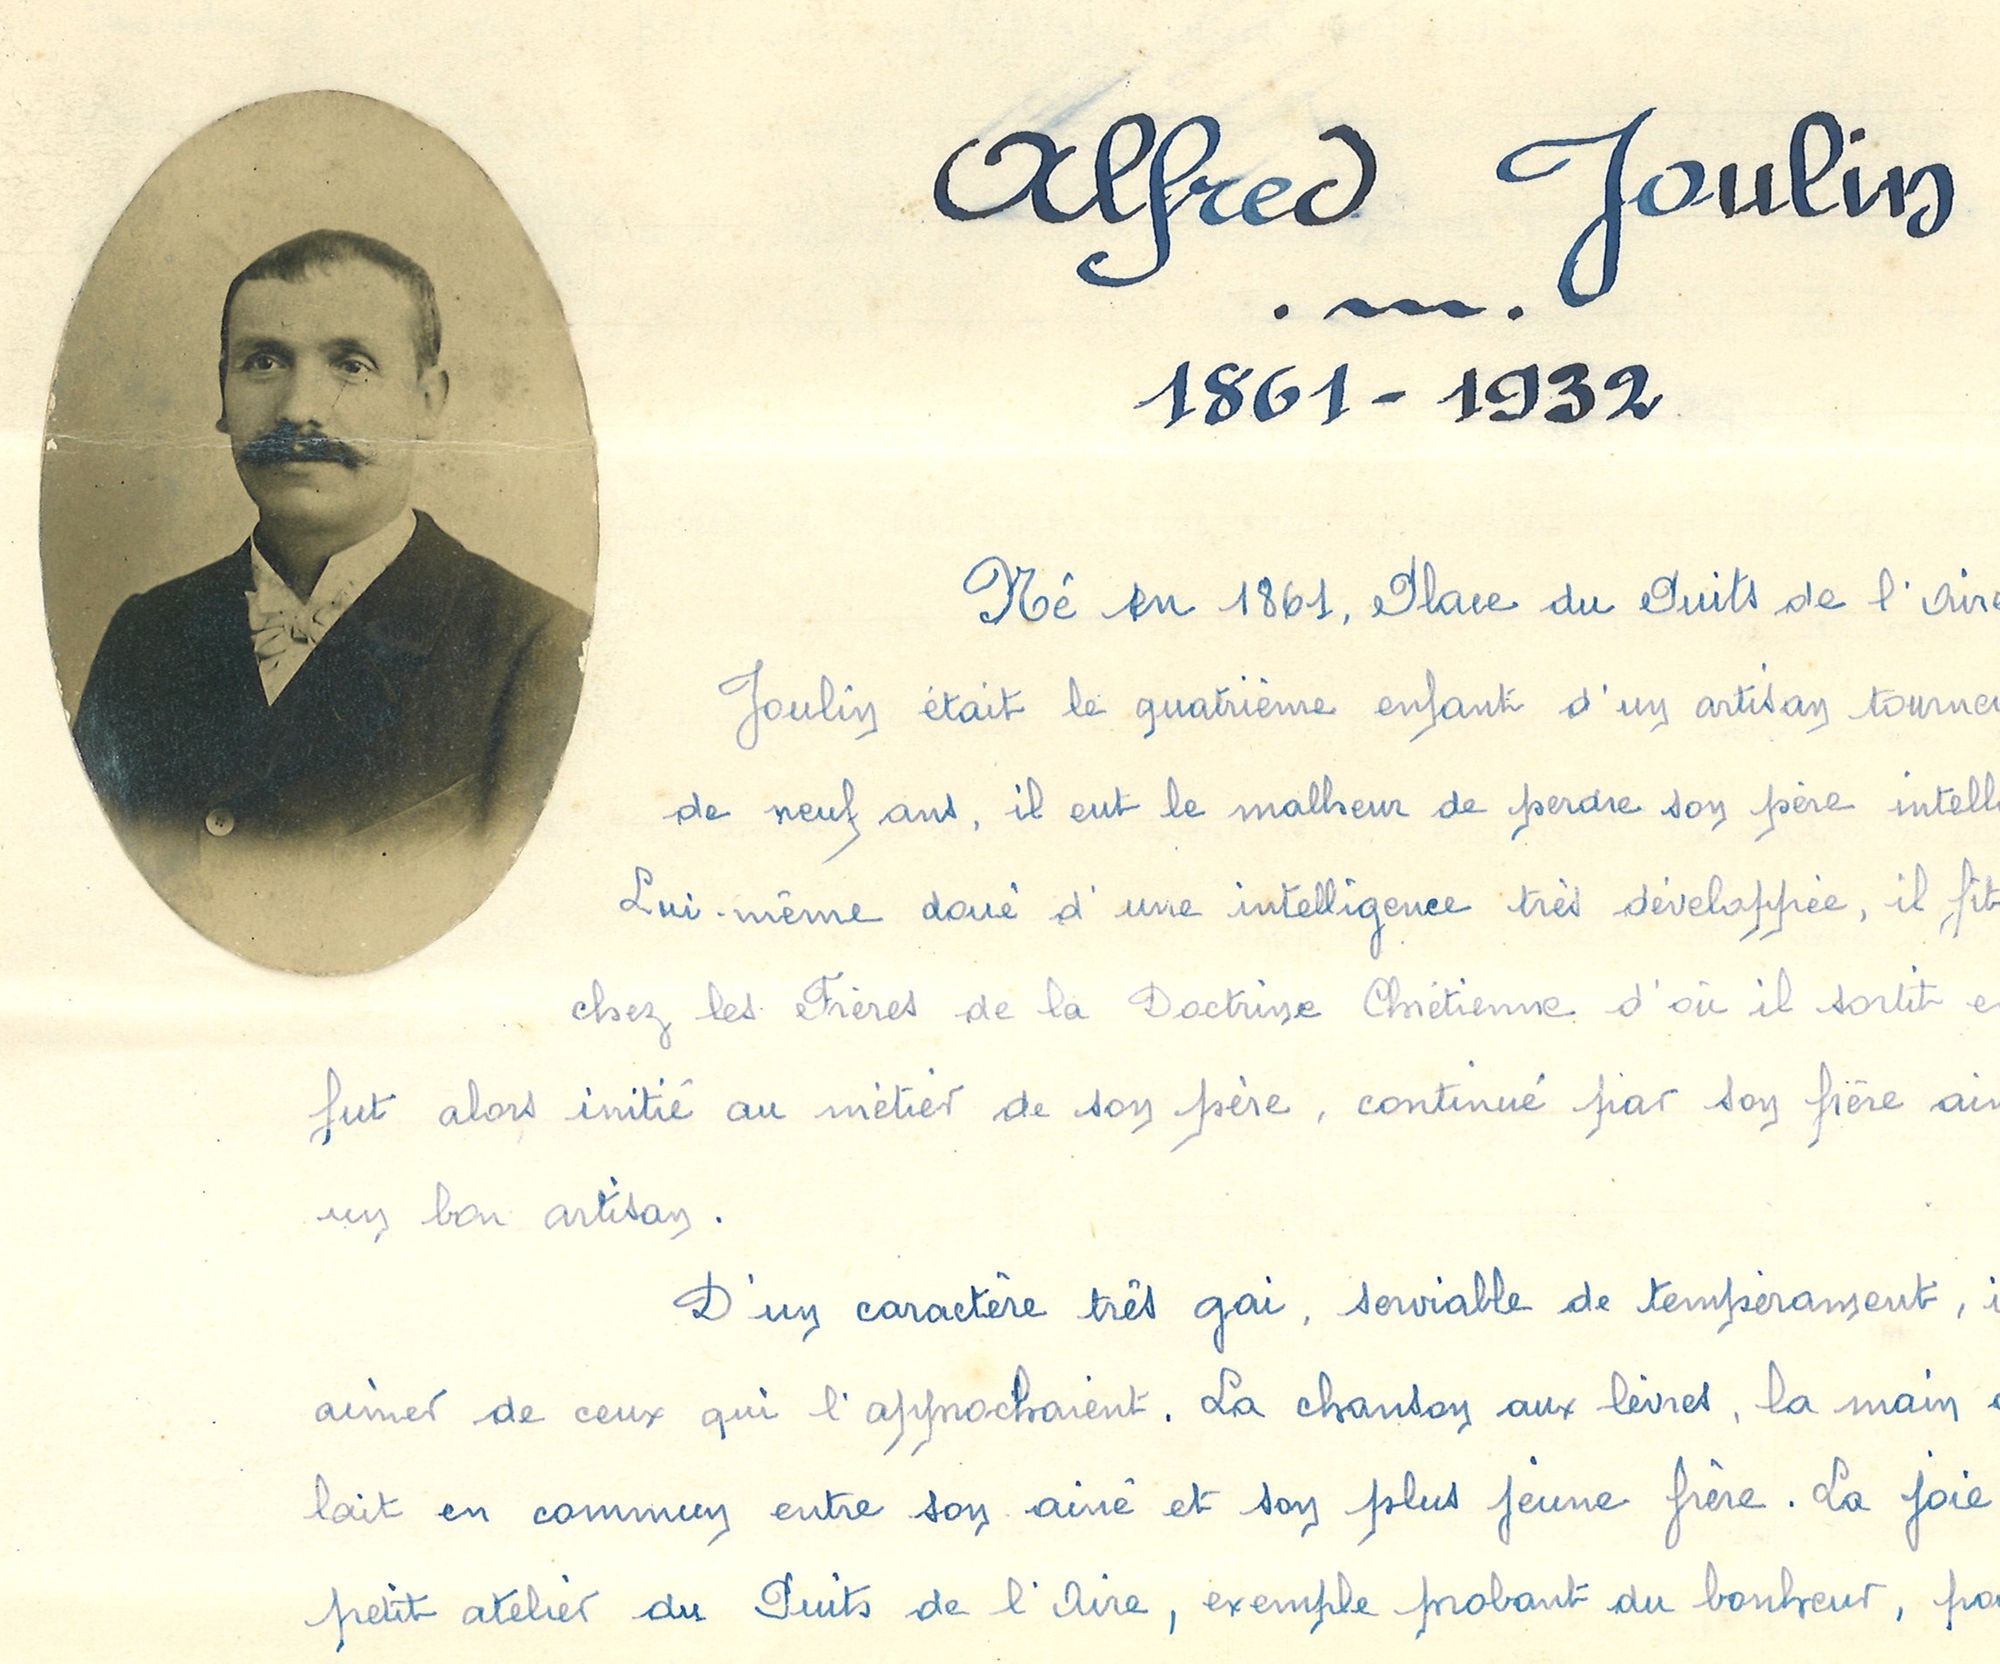 Alfred Joulin
1861 - 1932
Né en 1861, Place du Puits de l'Aire
Joulin était le quatrième enfant d'un artisan tourneu
de neuf ans, il eut le malheur de perdre son père intell
Lui-même doué d'une intelligence très développée, il fit
chez les Frères de la Doctrine Chrétienne d'où il sortit e
fut alors initié au métier de son père, continué par son frère ain
un bon artisan.
D'un caractère très gai, serviable de tempérament, i
aimer de ceux qui l'approchaient. La chanson aux lèvres, la main
lait en commun entre son ainé et son plus jeune frère. La joie
petit atelier du Puits de l'Aire, exemple probant du bonheur, pa